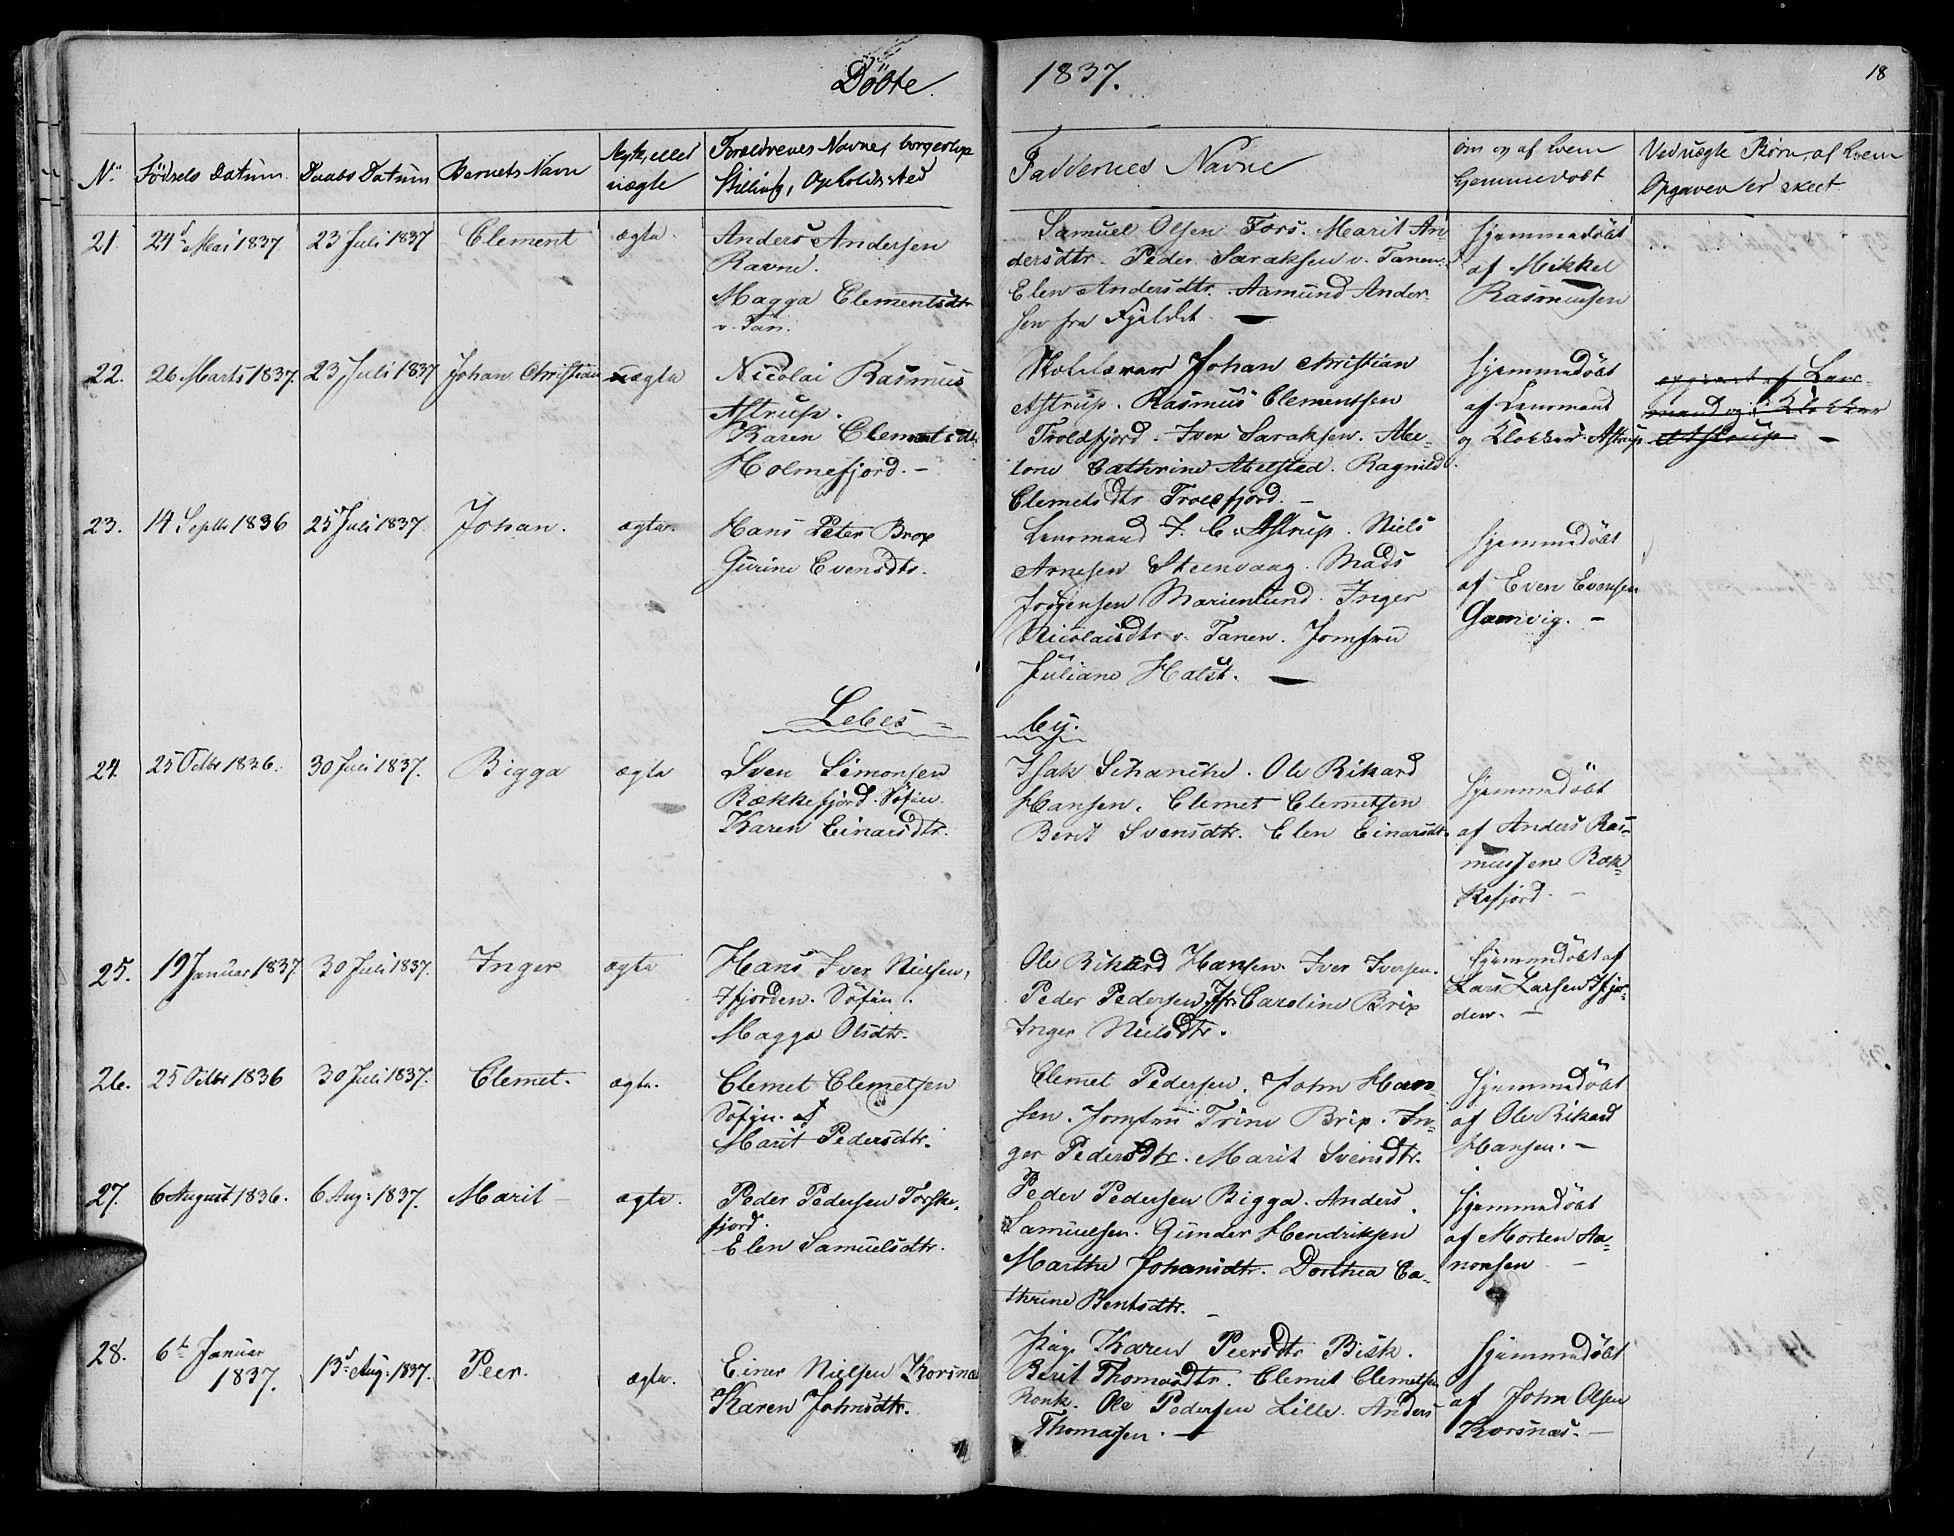 Döbte 1837. 18
No Födsels Datum. Daabs Datum Barnets Navn Ægte, eller uægte Foreldrenes Navne, borgerlige Stilling, Opholdssted
Faddernes Navne
om og af hvem hjemmedøbt
Ved uægte Børn, af hvem Opgaven er skeet
21. 24de Mai 1837 23 Juli 1837 Clement ægte.
Anders Andersen
Ravne.
Magga Clementsdtr
v. Tan.
Samuel Olsen Fors. Marit An-
dersdtr. Peder Saraksen v. Tanen.
Elen Andersdtr. Aamund Ander-
sen fra Fjeldet.
hjemmedøbt
af Mikkel
Rasmussen
22. 26 Marts 1837. 23 Juli 1837 Johan Christian uægte
Nicolai Rasmus
Astrup.
Karen Clementsdtr
Holmefjord. -
Skolelærer Johan Christian
Astrup. Rasmus Clementsen
Troldfjord. Iver Saraksen.
Cathrine Abelsted. Ragnild
Clemetsdtr. Troldfjord. -
hjemmedøbt
af Lensmand
og Klokker Astrup
opgivet af Lens-
mand og Klokker
Astrup -
23. 14 Septbr 1836 25 Juli 1837. Johan. ægte.
Hans Peter Brox
Gurine Evensdtr.
Lensmand J. C. Astrup. Niels
Arnesen Steenvaag. Mads
Jørgensen Marienlund. Inger
Nicolaisdtr v. Tanen. Jomfru
Juliane Halst.
hjemmedøbt
af Even Evensen
Gamvig. -
Lebes-
by.
24. 25 Octbr 1836. 30 Juli 1837. Bigga ægte
Sven Simonsen
Bækkefjord. Søfin.
Karen Einarsdtr.
Isak Schanche. Ole Rikard
Hansen. Clemet Clemetsen
Berit Svensdtr. Elen Einarsdtr.
hjemmedøbt
af Anders Ras-
mussen Bæk-
kefjord. -
25. 19 Januar 1837. 30 Juli 1837. Inger ægte
Hans Iver Nielsen,
Ifjorden. Søfin.
Magga Olsdtr.
Ole Rikard Hansen. Iver Iversen.
Peder Pedersen, Jfr. Caroline Brix
Inger Nielsdtr.
hjemmedøbt af
Lars Larsen Ifjor-
den. -
26. 25 Octbr 1836 30 Juli 1837. Clemet. ægte.
Clemet Clemetsen
Søfin.
Marit Pedersdtr.
Clemet Pedersen. John Han-
sen. Jomfru Trine Brix. In-
ger Pedersdtr. Marit Svensdtr.
hjemmedøbt
af Ole Rikard
Hansen. -
27. 6 August 1836. 6 Aug: 1837. Marit - ægte.
Peder Pedersen Torske-
fjord.
Elen Samuelsdtr.
Peder Pedersen Bigga. Anders
Samuelsen. Gunder Hendriksen
Marthe Johansdtr. Dorthea Ca-
thrine Bentsdtr. -
hjemmedøbt
af Morten Aa-
nonsen -
28. 6te Januar
1837. 13de Aug: 1837. Peer. ægte.
Einer Nielsen Korsnæs
Karen Johnsdtr.
Karen Peersdtr Bisk.
Berit Thomasdtr. Clemet Clemetsen
Ronk. Ole Pedersen Lille. Anders
Thomassen. -
hjemmedøbt
af John Olsen
Korsnæs. -